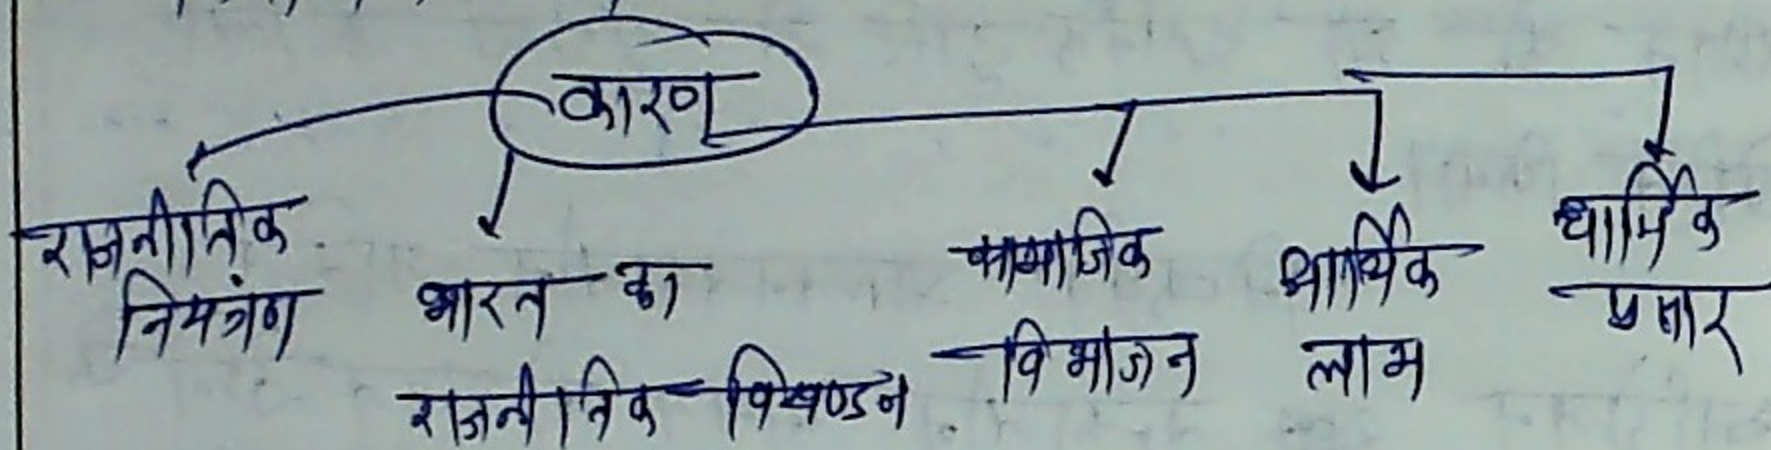 कारण
राजनीतिक
नियंत्रण
भारत का
राजनीतिक विखण्डन
सामाजिक
विभाजन
आर्थिक
लाभ
धार्मिक
प्रसार